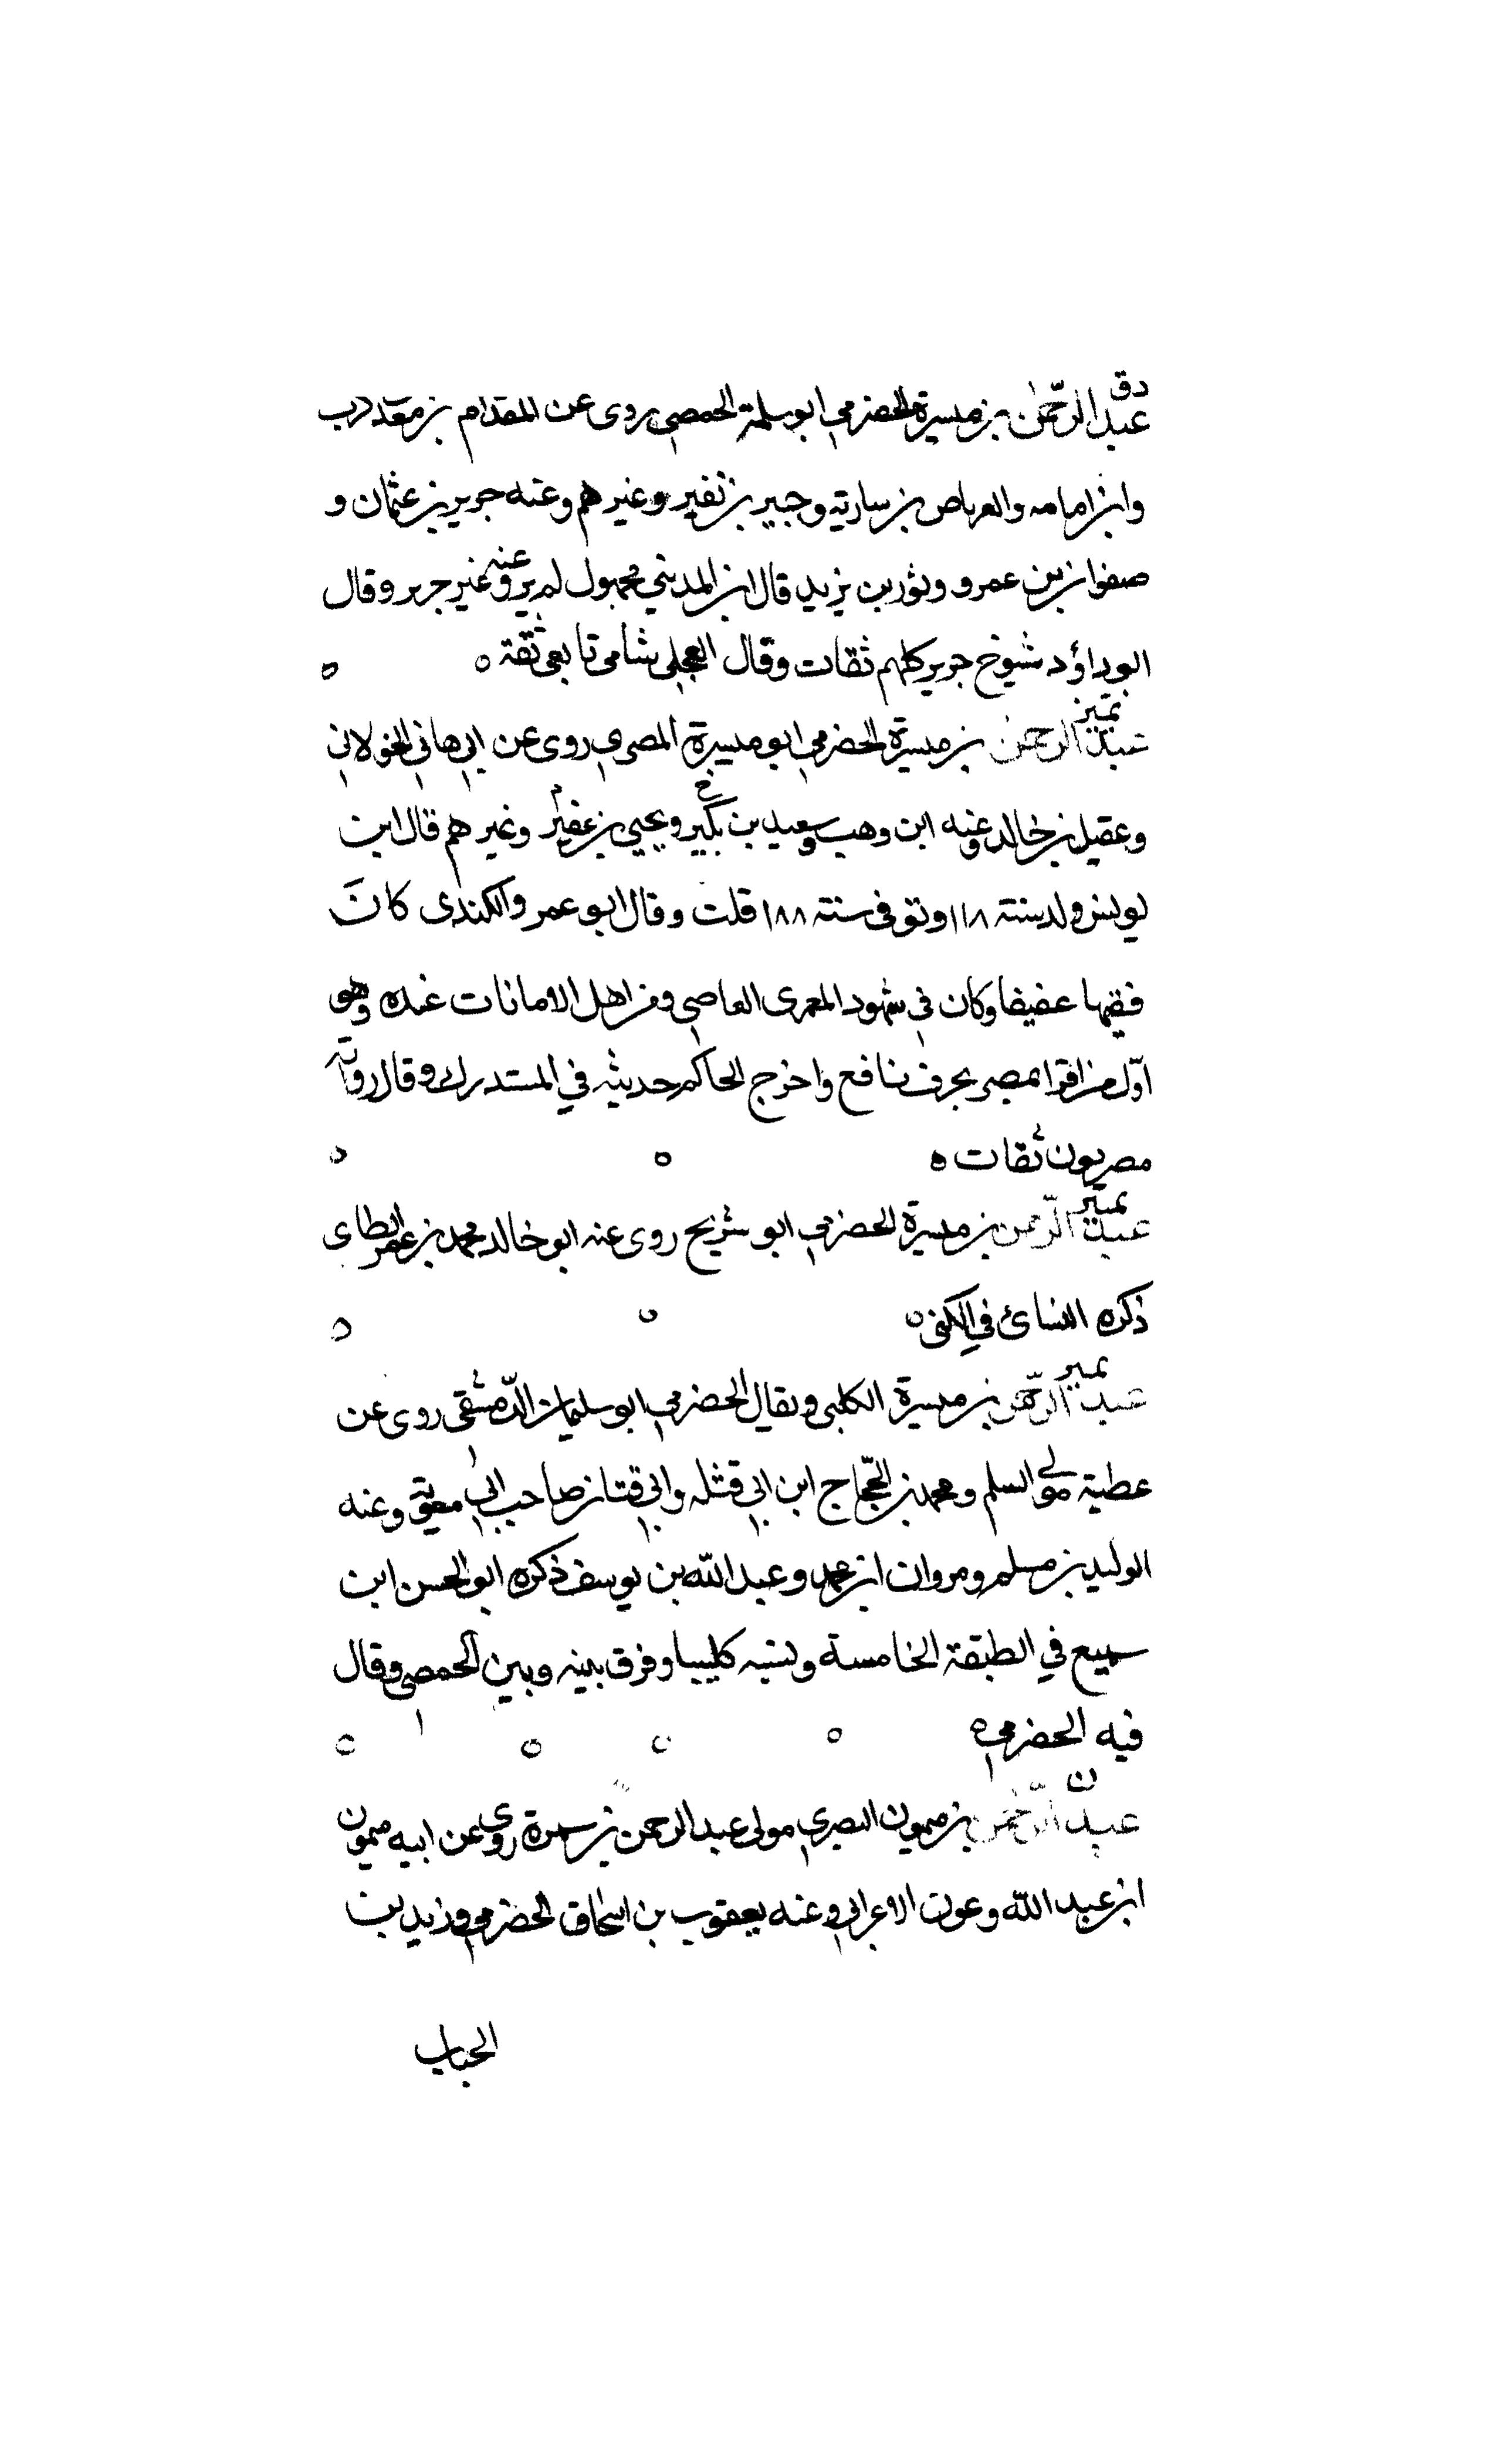 دق
عبد الرحمٰن بن ميسرة الحضرمي ابو سلمة الحمصي روى عن المقدام بن معد كرب
وابن امامه والعرباض بن سارية وجبير بن نفير وغيرهم وعنه جرير بن عثمان و
صفوان بن عمرو وثور بن يزيد قال ابن المديني مجهول لم يرو عنه غير جرير وقال
ابو داؤد شيوخ جرير كلهم ثقات وقال العجلي شامي تابعي ثقة ٥ ٥
تميز
عبد الرحمٰن بن ميسرة الحضرمي ابو ميسرة المصري روى عن ابي هاني الخولاني
وعقيل بن خالد وعنه ابن وهب وسعيد بن بكير خ ويحيى بن عفير م وغيرهم قال ابن
يونس ولد سنة ١١٨ وتوفى سنة ١٨٨ قلت وقال ابو عمرو الكندى كانَ
فقيها عفيفا وكان في شهود المعمرى القاضي ومن اهل الامانات عنده وهو
اوّل من اقرا بمصر بحرف نافع واخرج الحاكم حديثه في المستدرك وقال رواته
مصريون ثقات ٥ ٥ ٥
تميز
عبد الرّحمن بن ميسرة الحضرمي ابو شريح روى عنه ابو خالد محمد بن عمر الطاى
ذكره النسائ في الكنى ٥ ٥ ٥
تميز
عبد الرحمن بن ميسرة الكلبى ويقال الحضرمي ابو سليمان الدّمشقى روى عن
عطية مولى السلم ومحمد بن الحجّاج ابن ابي قتله وابي قتان صاحب ابي معوية وعنه
الوليد بن مسلم ومروان ابن محمد وعبد اللّه بن يوسف ذكره ابو الحسن ابن
سميع في الطبقة الخامسة ونسبه كلبيا وفرق بينه وبين الحمصي وقال
فيه الحضرمي ٥ ٥ ٥ ٥ ٥
ن
عبد الرّحمٰن بن ميمون البصري مولى عبد الرحمن بن سمرة روى عن ابيه ميمون
ابن عبد اللّه وعون الاعرابي وعنه يعقوب بن اسحاق الحضرمي وزيد بن
الحباب